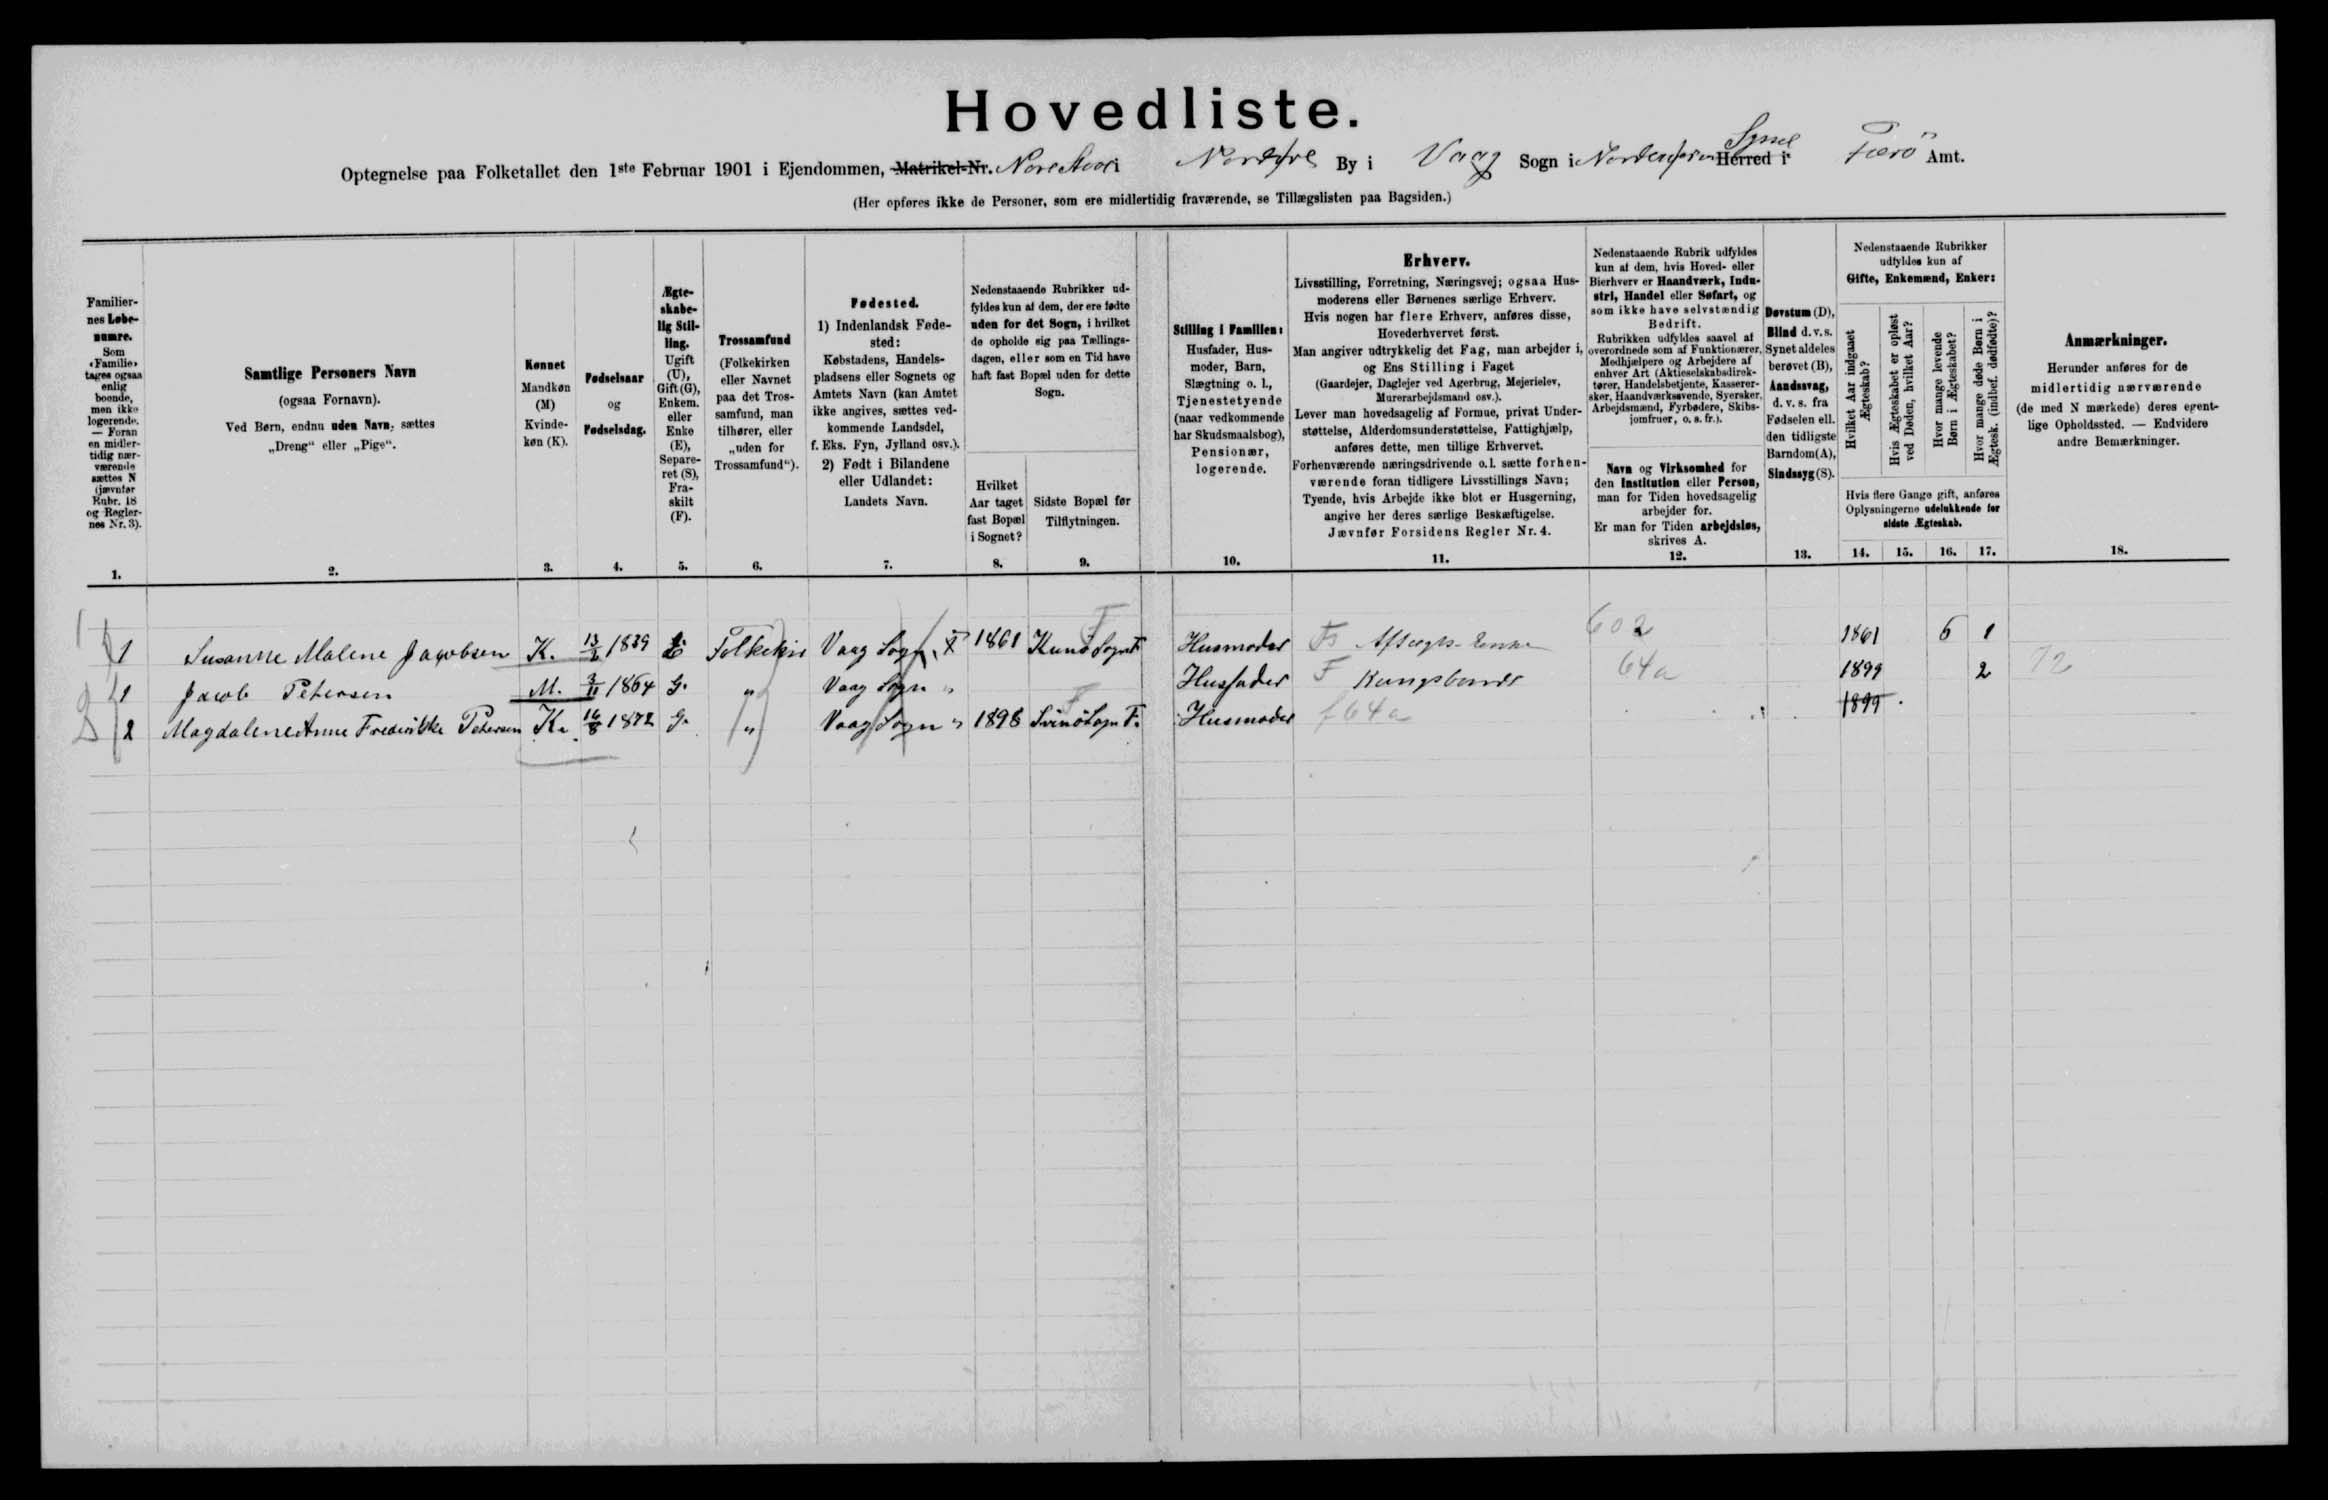 Hovedliste.
Optegnelse paa Folketallet den 1ste Februar 1901 i Ejendommen, Matrikel-Nr. i By i Vaag Sogn i Herred i Syssel Færö Amt.
(Her opføres ikke de Personer, som ere midlertidig fraværende, se Tillægslisten paa Bagsiden.)
Familiernes Løbenumre.
Som «Familie» tages ogsaa enlig boende, men ikke logerende. — Foran en midlertidig nærværende sættes N (jævnfør Rubr. 18 og Reglernes Nr. 3).
1.
Samtlige Personers Navn
(ogsaa Fornavn).
Ved Børn, endnu uden Navn, sættes
„Dreng“ eller „Pige“.
2.
Kønnet
Mandkøn (M)
Kvindekøn (K).
3.
Fødselsaar
og
Fødselsdag.
4.
Ægteskabelig Stilling.
Ugift (U), Gift (G), Enkem. eller Enke (E), Separeret (S), Fraskilt (F).
5.
Trossamfund
(Folkekirken eller Navnet paa det Trossamfund, man tilhører, eller „uden for Trossamfund“).
6.
Fødested.
1) Indenlandsk Fødested:
Købstadens, Handelspladsens eller Sognets og Amtets Navn (kan Amtet ikke angives, sættes vedkommende Landsdel, f. Eks. Fyn, Jylland osv.).
2) Født i Bilandene eller Udlandet:
Landets Navn.
7.
Nedenstaaende Rubrikker udfyldes kun af dem, der ere fødte uden for det Sogn, i hvilket de opholde sig paa Tællingsdagen, eller som en Tid have haft fast Bopæl uden for dette Sogn.
Hvilket Aar taget fast Bopæl i Sognet?
8.
Sidste Bopæl før Tilflytningen.
9.
Stilling i Familien:
Husfader, Husmoder, Barn, Slægtning o. l., Tjenestetyende (naar vedkommende har Skudsmaalsbog), Pensionær, logerende.
10.
Erhverv.
Livsstilling, Forretning, Næringsvej; ogsaa Husmoderens eller Børnenes særlige Erhverv.
Hvis nogen har flere Erhverv, anføres disse, Hovederhvervet først.
Man angiver udtrykkelig det Fag, man arbejder i, og Ens Stilling i Faget
(Gaardejer, Daglejer ved Agerbrug, Mejerielev, Murerarbejdsmand osv.).
Lever man hovedsagelig af Formue, privat Understøttelse, Alderdomsunderstøttelse, Fattighjælp, anføres dette, men tillige Erhvervet.
Forhenværende næringsdrivende o. l. sætte forhenværende foran tidligere Livsstillings Navn; Tyende, hvis Arbejde ikke blot er Husgerning, angive her deres særlige Beskæftigelse.
Jævnfør Forsidens Regler Nr. 4.
11.
Nedenstaaende Rubrik udfyldes kun af dem, hvis Hoved- eller Bierhverv er Haandværk, Industri, Handel eller Søfart, og som ikke have selvstændig Bedrift.
Rubrikken udfyldes saavel af overordnede som af Funktionærer, Medhjælpere og Arbejdere af enhver Art (Aktieselskabsdirektører, Handelsbetjente, Kasserersker, Haandværkssvende, Syersker, Arbejdsmænd, Fyrbødere, Skibsjomfruer, o. s. fr.).
Navn og Virksomhed for den Institution eller Person, man for Tiden hovedsagelig arbejder for.
Er man for Tiden arbejdsløs, skrives A.
12.
Døvstum (D),
Blind d. v. s. Synet aldeles berøvet (B),
Aandssvag, d. v. s. fra Fødselen ell. den tidligste Barndom (A),
Sindssyg (S).
13.
Nedenstaaende Rubrikker udfyldes kun af
Gifte, Enkemænd, Enker:
Hvilket Aar indgaaet Ægteskab?
Hvis Ægteskabet er opløst ved Døden, hvilket Aar?
Hvor mange levende Børn i Ægteskabet?
Hvor mange døde Børn i Ægtesk. (indbef. dødfødte)?
Hvis flere Gange gift, anføres Oplysningerne udelukkende for sidste Ægteskab.
14. 15. 16. 17.
Anmærkninger.
Herunder anføres for de midlertidig nærværende (de med N mærkede) deres egentlige Opholdssted. — Endvidere andre Bemærkninger.
18.
1 Susanne Malene Jacobsen K. 13/2 1839 E Vaag Sogn 1861 Kunö Sogn F. Husmoder Fs 602 1861 6 1
1 Jacob Petersen M. 3/11 1864 G. " Vaag Sogn " Husfader F Kongsbonde 64a 1899 2 72
2 Magdalene Anne Frederikke Petersen K. 16/8 1872 G. " Vaag Sogn " 1898 Svinö Sogn F. Husmoder f 64a 1899